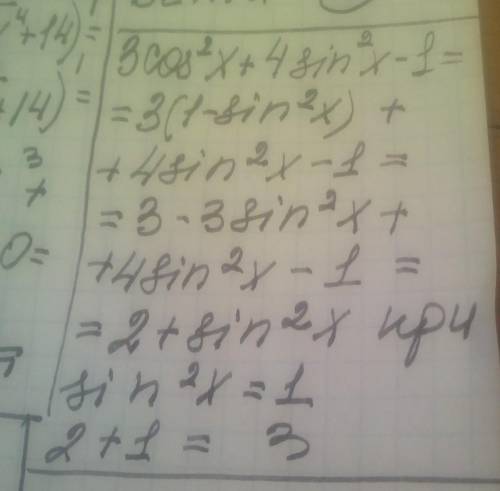 ⁴+14)=
3cos²x+4sin²x-1=
+14)=
=3(1-sin²x) +
3
+4sin²x-1=
+
=3-3sin²x+
0=
+4sin²x-1 =
=2+sin²x при
sin²x=1
2+1 = 3